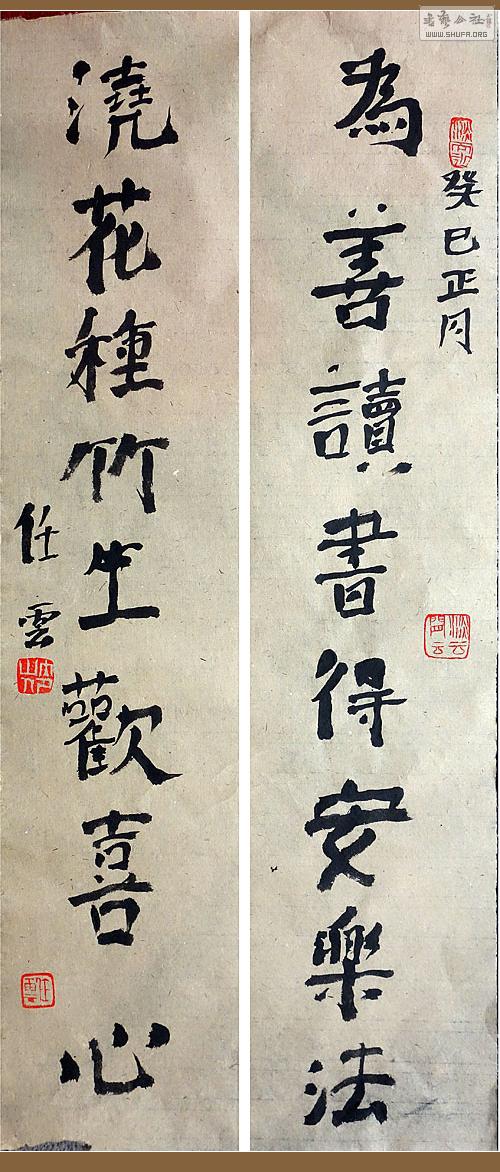 書藝公社
WWW.SHUFA.ORG
癸巳正月
為善讀書得安樂法
澆花種竹生歡喜心
任雲
任雲